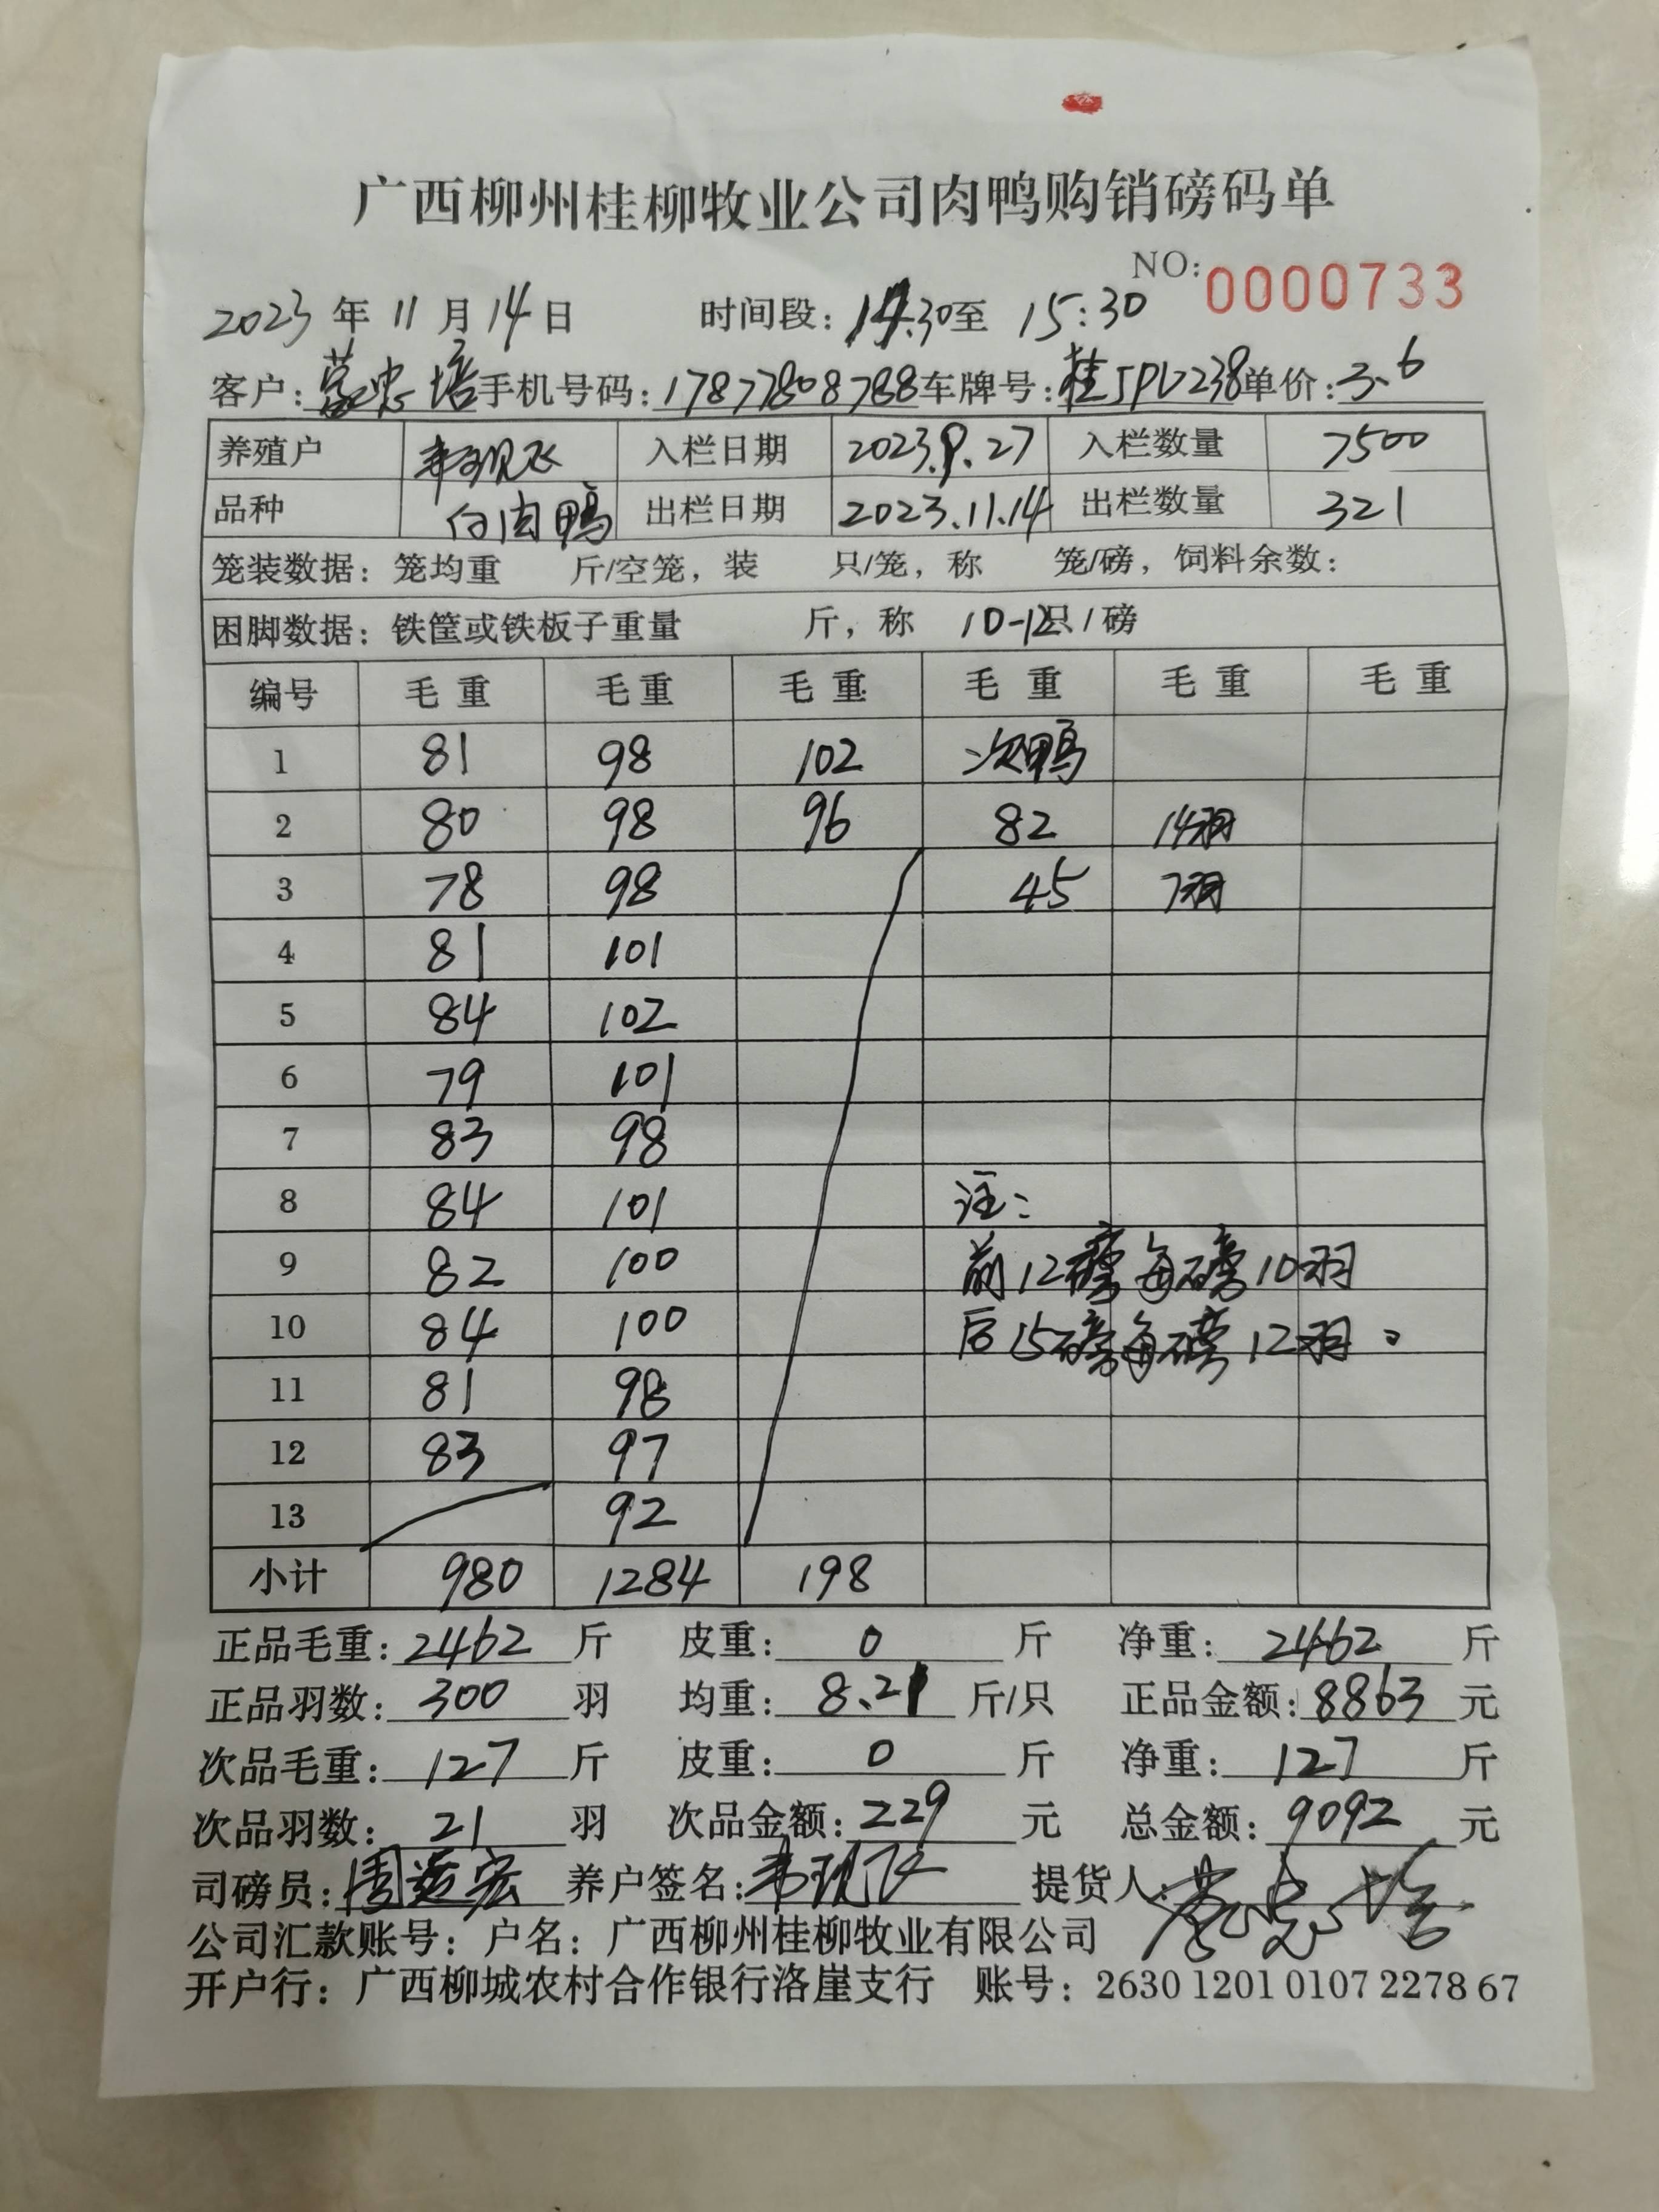 广西柳州桂柳牧业公司肉鸭购销磅码单
NO: 0000733
2023 年 11 月 14 日 时间段: 14:30至 15:30
客户: 蒙忠培 手机号码: 17877808788 车牌号: 桂JPV238 单价: 3.6
养殖户 韦现飞 入栏日期 2023.9.27 入栏数量 7500
品种 白肉鸭 出栏日期 2023.11.14 出栏数量 321
笼装数据: 笼均重 斤/空笼, 装 只/笼, 称 笼/磅, 饲料余数:
困脚数据: 铁筐或铁板子重量 斤, 称 10-12只/磅
编号 毛重 毛重 毛重 毛重 毛重 毛重
1 81 98 102 次鸭
2 80 98 96 82 14羽
3 78 98 45 7羽
4 81 101
5 84 102
6 79 101
7 83 98
8 84 101 注:
9 82 100 前12磅每磅10羽
10 84 100 后15磅每磅12羽。
11 81 98
12 83 97
13 92
小计 980 1284 198
正品毛重: 2462 斤 皮重: 0 斤 净重: 2462 斤
正品羽数: 300 羽 均重: 8.21 斤/只 正品金额: 8863 元
次品毛重: 127 斤 皮重: 0 斤 净重: 127 斤
次品羽数: 21 羽 次品金额: 229 元 总金额: 9092 元
司磅员: 周 宏 养户签名: 韦现飞 提货人: 蒙忠培
公司汇款账号: 户名: 广西柳州桂柳牧业有限公司
开户行: 广西柳城农村合作银行洛崖支行 账号: 2630 1201 0107 2278 67